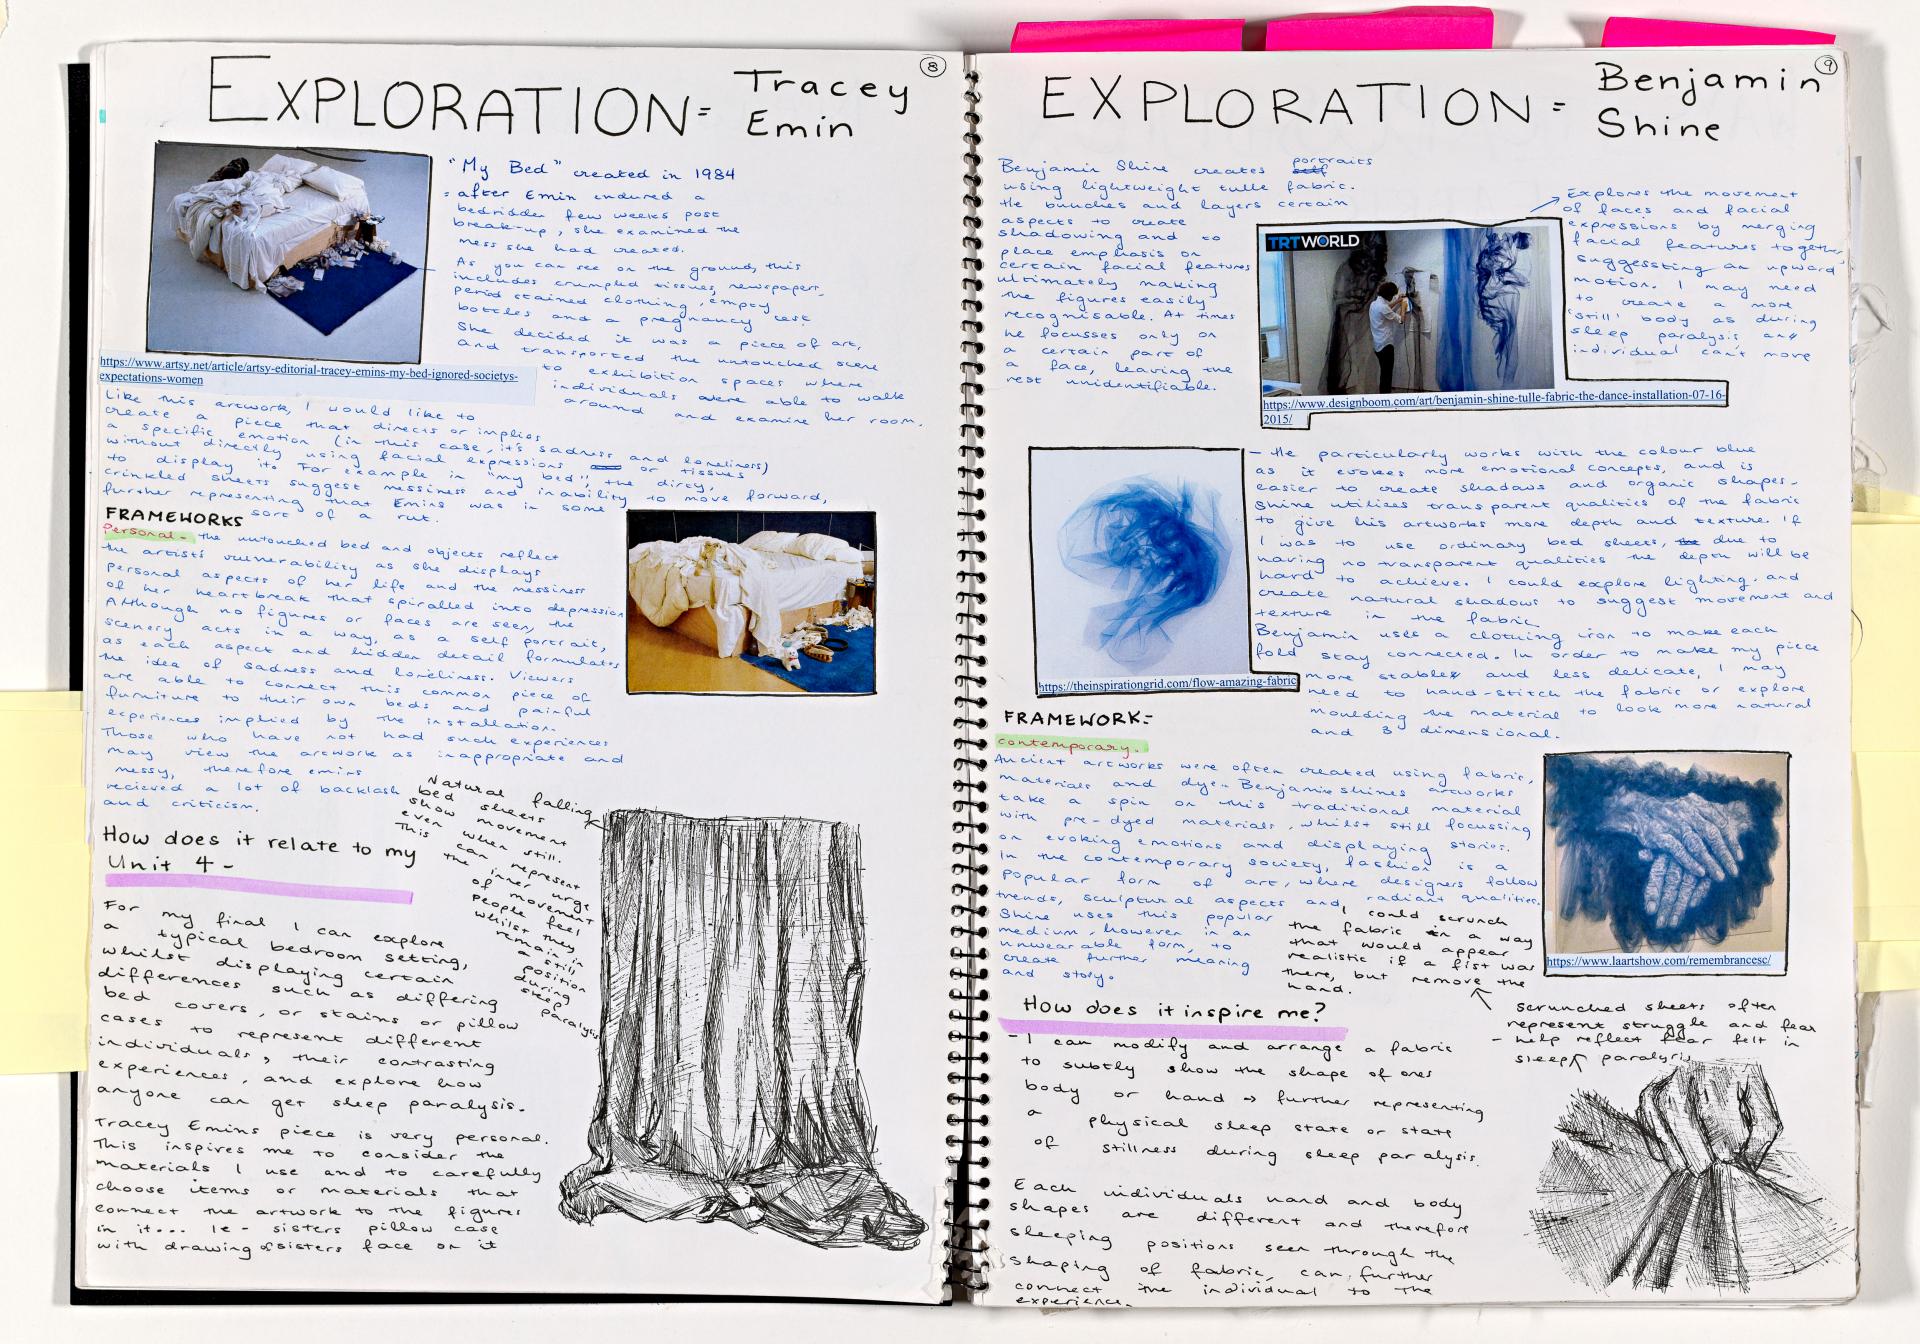 8
EXPLORATION = Tracey
Emin
"My Bed" created in 1984
= after Emin endured a
bedridden few weeks post
break-up, she examined the
mess she had created.
As you can see on the ground, this
includes crumpled tissues, newspapers,
period stained clothing, empty
bottles and a pregnancy test.
She decided it was a piece of art,
and transported the untouched scene
to exhibition spaces where
individuals were able to walk
around and examine her room.
https://www.artsy.net/article/artsy-editorial-tracey-emins-my-bed-ignored-societys-
expectations-women
Like this artwork, I would like to
create a piece that directs or implies
a specific emotion (in this case, it's sadness and loneliness)
without directly using facial expressions or tissues
to display it. For example in "my bed", the dirty,
crinkled sheets suggest messiness and inability to move forward,
further representing that Emins was in some
sort of a rut.
FRAMEWORKS
Personal - the untouched bed and objects reflect
the artists vulnerability as she displays
personal aspects of her life and the messiness
of her heartbreak that spiralled into depression
Although no figures or faces are seen, the
scenery acts in a way, as a self portrait,
as each aspect and hidden detail formulates
the idea of sadness and loneliness. Viewers
are able to connect this common piece of
furniture to their own beds and painful
experiences implied by the installation.
Those who have not had such experiences
may view the artwork as inappropriate and
messy, therefore emins
recieved a lot of backlash
and criticism.
Natural falling
bed sheets
show movement
even when still.
This can represent
the inner urge
of movement
people feel
whilst they
remain in
a still
position
during
sleep
paralysis
How does it relate to my
Unit 4 -
For my final I can explore
a typical bedroom setting,
whilst displaying certain
differences such as differing
bed covers, or stains or pillow
cases to represent different
individuals, their contrasting
experiences, and explore how
anyone can get sleep paralysis.
Tracey Emins piece is very personal.
This inspires me to consider the
materials I use and to carefully
choose items or materials that
connect the artwork to the figures
in it... ie - sisters pillow case
with drawing of sisters face on it
9
EXPLORATION = Benjamin
Shine
Benjamin Shine creates portraits
using lightweight tulle fabric.
He bunches and layers certain
aspects to create
shadowing and to
place emphasis on
certain facial features
ultimately making
the figures easily
recognisable. At times
he focusses only on
a certain part of
a face, leaving the
rest unidentifiable.
TRTWORLD
https://www.designboom.com/art/benjamin-shine-tulle-fabric-the-dance-installation-07-16-
2015/
Explores the movement
of faces and facial
expressions by merging
facial features together
suggessting an upward
motion. I may need
to create a more
'still' body as during
sleep paralysis an
individual can't move
- He particularly works with the colour blue
as it evokes more emotional concepts, and is
easier to create shadows and organic shapes.
Shine utilises transparent qualities of the fabric
to give his artworks more depth and texture. If
I was to use ordinary bed sheets, due to
having no transparent qualities the depth will be
hard to achieve. I could explore lighting and
create natural shadows to suggest movement and
texture in the fabric
Benjamin uses a clothing iron to make each
fold stay connected. In order to make my piece
more stable and less delicate, I may
need to hand-stitch the fabric or explore
moulding the material to look more natural
and 3 dimensional.
https://theinspirationgrid.com/flow-amazing-fabric
FRAMEWORK:-
contemporary.
Ancient artworks were often created using fabric,
materials and dye. Benjamin Shines artworks
take a spin on this traditional material
with pre-dyed materials, whilst still focussing
on evoking emotions and displaying stories.
In the contemporary society, fashion is a
popular form of art, where designers follow
trends, sculptural aspects and radiant qualities.
Shine uses this popular
medium, however in an
unwearable form, to
create further meaning
and story.
I could scrunch
the fabric in a way
that would appear
realistic if a fist was
there, but remove the
hand.
https://www.laartshow.com/remembrancesc/
scrunched sheets often
represent struggle and fear
- help reflect fear felt in
sleep paralysis
How does it inspire me?
- I can modify and arrange a fabric
to subtly show the shape of ones
body or hand → further representing
a physical sleep state or state
of stillness during sleep paralysis.
Each individuals hand and body
shapes are different and therefore
sleeping positions seen through the
shaping of fabric, can further
connect the individual to the
experience.